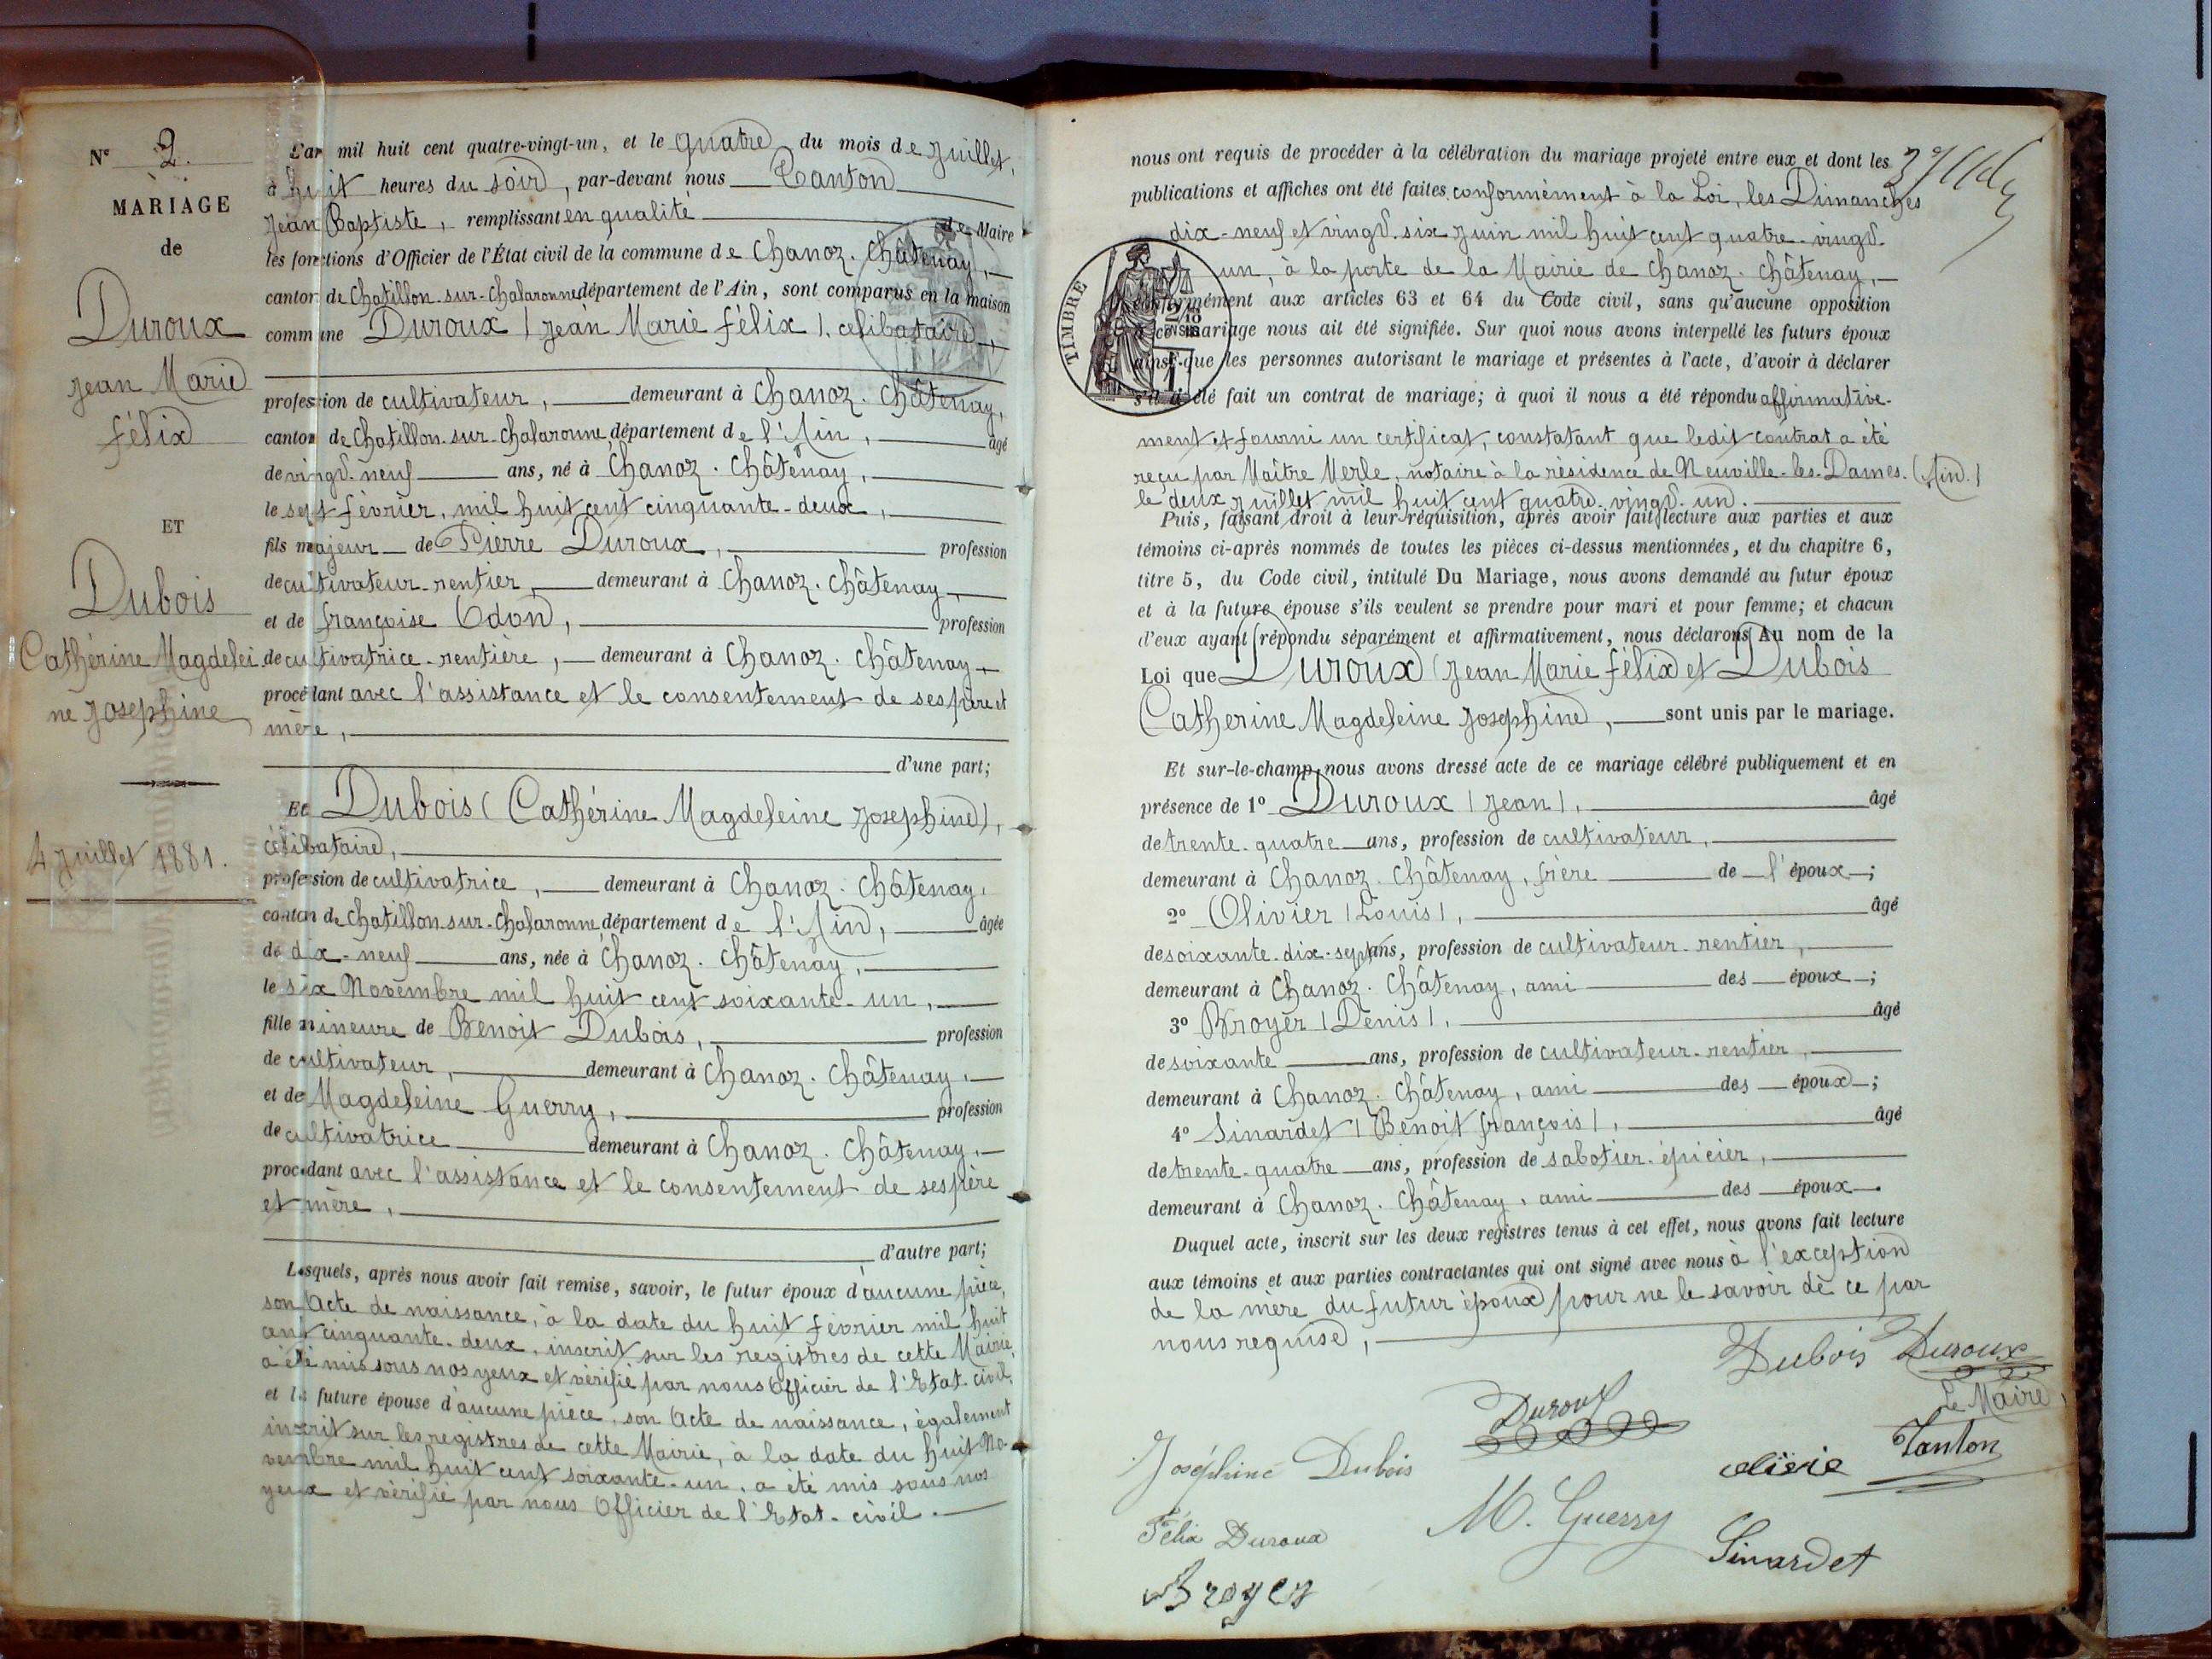 N° 2.
MARIAGE
de
Duroux
Jean Marie
félix
ET
Dubois
Cathérine Magdelei
ne Josephine
4 Juillet 1881.
L'an mil huit cent quatre-vingt-un, et le quatre du mois de Juillet,
à huit heures du soir, par-devant nous Tanton
Jean Baptiste, remplissant en qualité de Maire
les fonctions d'Officier de l'État civil de la commune de Chanoz. Châtenay,
canton de Chatillon-sur-Chalaronne département de l'Ain, sont comparus en la maison
commune Duroux (Jean Marie félix), célibataire,
profession de cultivateur, demeurant à Chanoz. Châtenay,
canton de Chatillon-sur-Chalaronne département de l'Ain, âgé
de vingt-neuf ans, né à Chanoz. Châtenay,
le sept février, mil huit cent cinquante-deux,
fils majeur de Pierre Duroux, profession
de cultivateur-rentier, demeurant à Chanoz. Châtenay,
et de françoise Odon, profession
de cultivatrice-rentière, demeurant à Chanoz. Châtenay,
procédant avec l'assistance et le consentement de ses père et
mère,
d'une part;
Et Dubois (Cathérine Magdeleine Josephine),
célibataire,
profession de cultivatrice, demeurant à Chanoz. Châtenay,
canton de Chatillon-sur-Chalaronne, département de l'Ain, âgée
de dix-neuf ans, née à Chanoz. Châtenay,
le six Novembre mil huit cent soixante-un,
fille mineure de Benoit Dubois, profession
de cultivateur, demeurant à Chanoz. Châtenay,
et de Magdeleine Guerry, profession
de cultivatrice demeurant à Chanoz. Châtenay,
procédant avec l'assistance et le consentement de ses père
et mère,
d'autre part;
Lesquels, après nous avoir fait remise, savoir, le futur époux d'aucune pièce,
son Acte de naissance, à la date du huit février mil huit
cent cinquante-deux, inscrit sur les registres de cette Mairie,
a été mis sous nos yeux et vérifié par nous Officier de l'Etat-civil,
et la future épouse d'aucune pièce, son Acte de naissance, également
inscrit sur les registres de cette Mairie, à la date du huit No-
vembre mil huit cent soixante-un, a été mis sous nos
yeux et vérifié par nous Officier de l'Etat-civil.
nous ont requis de procéder à la célébration du mariage projeté entre eux et dont les
publications et affiches ont été faites conformément à la Loi, les Dimanches
dix-neuf et vingt-six Juin mil huit cent quatre-vingt-
un, à la porte de la Mairie de Chanoz. Châtenay,
TIMBRE
2/10 EN SUS
conformément aux articles 63 et 64 du Code civil, sans qu'aucune opposition
à ce mariage nous ait été signifiée. Sur quoi nous avons interpellé les futurs époux
ainsi que les personnes autorisant le mariage et présentes à l'acte, d'avoir à déclarer
s'il a été fait un contrat de mariage; à quoi il nous a été répondu affirmative-
ment et fourni un certificat, constatant que ledit contrat a été
reçu par Maître Merle, notaire à la résidence de Neuville-les-Dames. (Ain.)
le deux Juillet mil huit cent quatre-vingt-un.
Puis, faisant droit à leur réquisition, après avoir fait lecture aux parties et aux
témoins ci-après nommés de toutes les pièces ci-dessus mentionnées, et du chapitre 6,
titre 5, du Code civil, intitulé Du Mariage, nous avons demandé au futur époux
et à la future épouse s'ils veulent se prendre pour mari et pour femme; et chacun
d'eux ayant répondu séparément et affirmativement, nous déclarons Au nom de la
Loi que Duroux (Jean Marie félix et Dubois
Catherine Magdeleine Josephine, sont unis par le mariage.
Et sur-le-champ nous avons dressé acte de ce mariage célébré publiquement et en
présence de 1° Duroux (Jean), âgé
de trente-quatre ans, profession de cultivateur,
demeurant à Chanoz. Châtenay, frère de l'époux;
2° Olivier (Louis), âgé
de soixante-dix-sept ans, profession de cultivateur-rentier,
demeurant à Chanoz. Châtenay, ami des époux;
3° Broyer (Denis), âgé
de soixante ans, profession de cultivateur-rentier,
demeurant à Chanoz. Châtenay, ami des époux;
4° Sinardet (Benoit françois), âgé
de trente-quatre ans, profession de sabotier-épicier,
demeurant à Chanoz. Châtenay, ami des époux.
Duquel acte, inscrit sur les deux registres tenus à cet effet, nous avons fait lecture
aux témoins et aux parties contractantes qui ont signé avec nous à l'exception
de la mère du futur époux pour ne le savoir de ce par
nous requise,
Dubois Duroux
Le Maire,
Duroux
Tanton
Joséphine Dubois
olivie
M. Guerry
Félix Duroux
Sinardet
Broyer